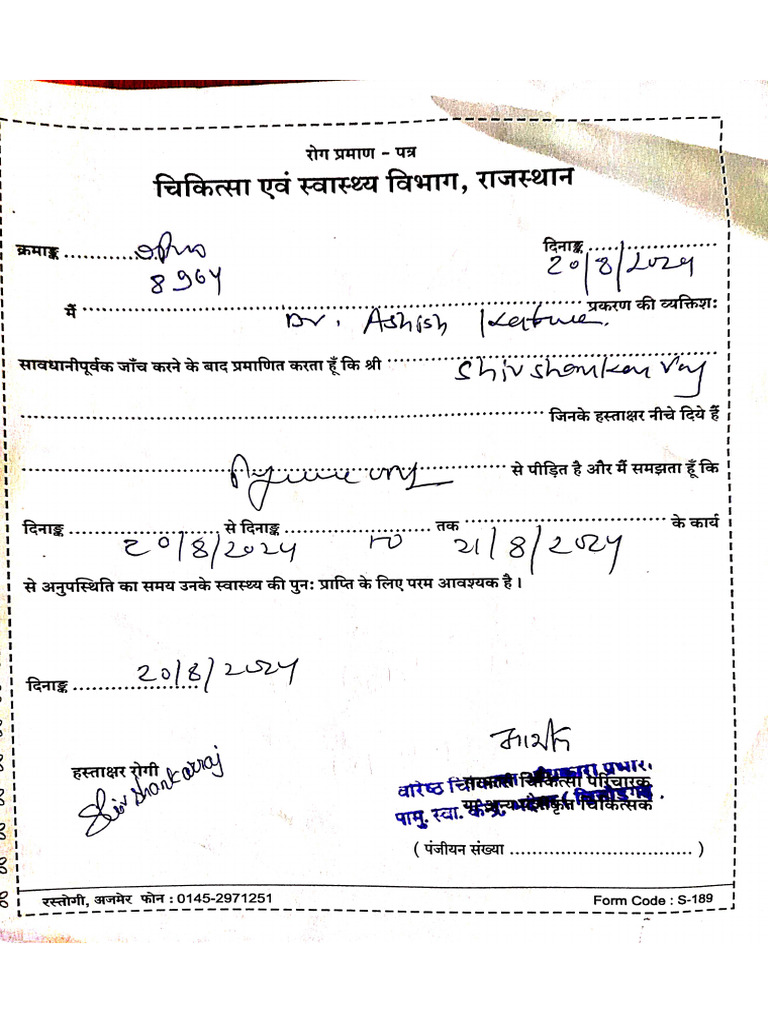 रोग प्रमाण - पत्र
चिकित्सा एवं स्वास्थ्य विभाग, राजस्थान
क्रमाङ्क .............. दिनाङ्क ......................
8964 20/8/2024
मैं .............. प्रकरण की व्यक्तिशः
Dr. Ashish
सावधानीपूर्वक जाँच करने के बाद प्रमाणित करता हूँ कि श्री ..............
Shivshankar Raj
.............. जिनके हस्ताक्षर नीचे दिये हैं
.............. से पीड़ित है और मैं समझता हूँ कि
दिनाङ्क .............. से दिनाङ्क .............. तक .............. के कार्य
20/8/2024 to 21/8/2024
से अनुपस्थिति का समय उनके स्वास्थ्य की पुनः प्राप्ति के लिए परम आवश्यक है।
दिनाङ्क .............. 20/8/2024
हस्ताक्षर रोगी
Shiv Shankar raj
चिकित्सा परिचारक
चिकित्सक
( पंजीयन संख्या .............. )
रस्तोगी, अजमेर फोन : 0145-2971251 Form Code : S-189